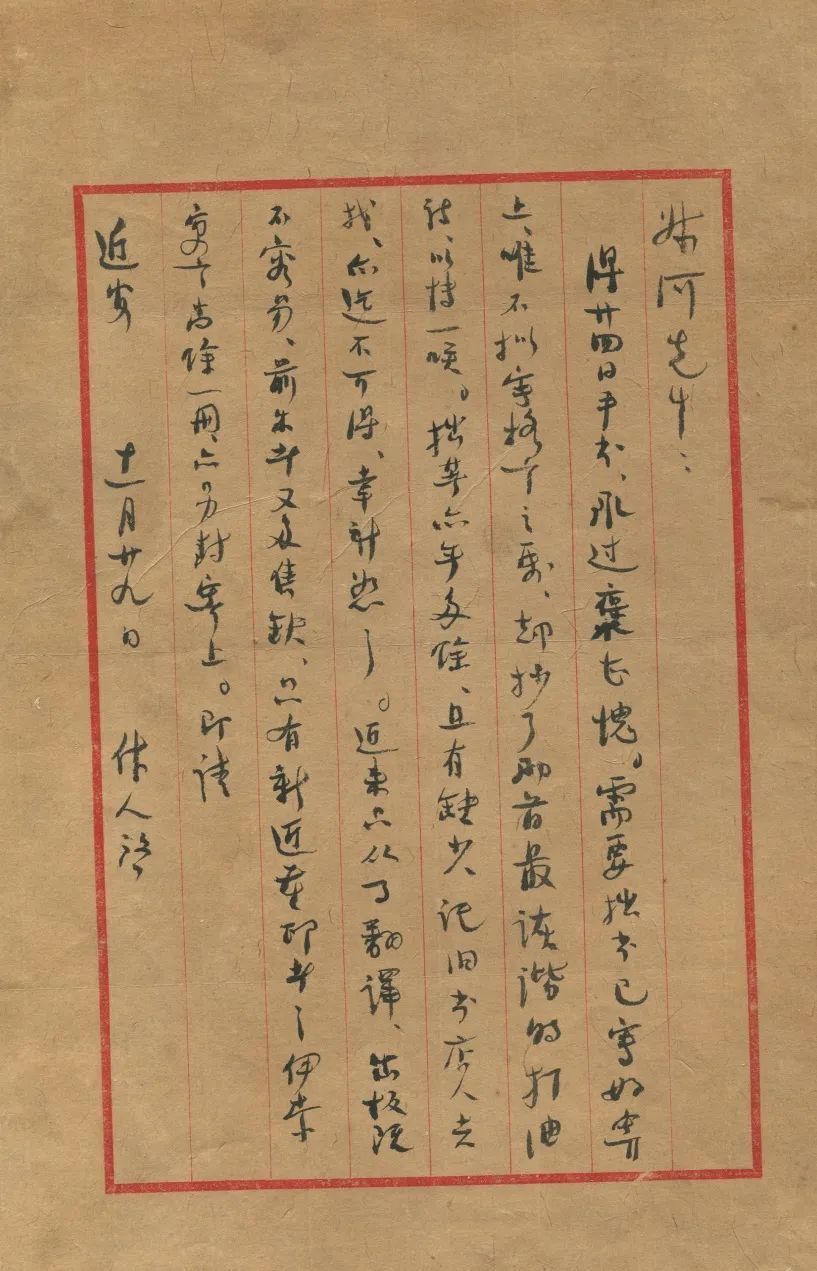 河先生：
得廿四日手书、承过褒甚愧。需要拙书已写好寄
上、唯不拟写格下之、却抄了两首最诙谐的打油
诗、以博一。拙著亦无多余、且有缺少、托旧书店人去
找、亦迄不可得、幸恕之。近来只从事翻译、出板既
不容易、前出者又多售缺、只有新近重印者之伊索
寓言尚余一册、亦另封寄上。即请
近安 十一月廿九日 作人启